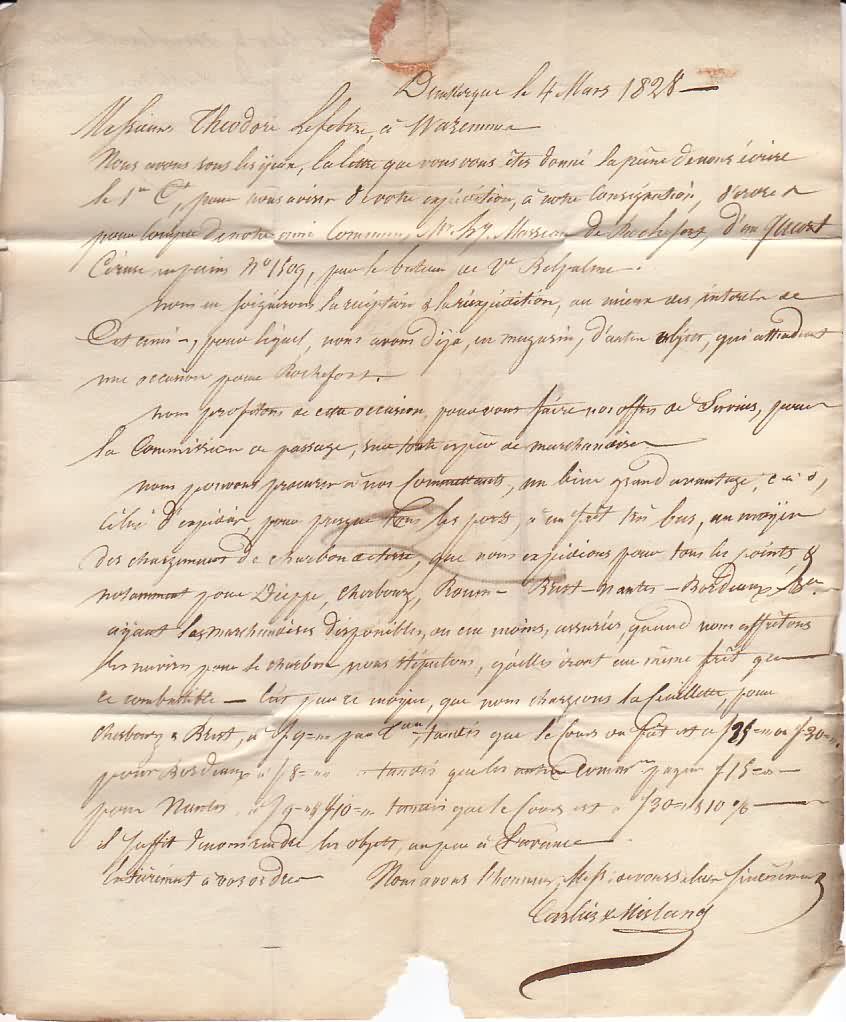 Dunkerque le 4 Mars 1828
Messieurs Théodore Lefebvre, à Wazemmes
Nous avons sous les yeux, la lettre que vous vous êtes donné la peine de nous écrire
le 1er Ct, pour nous aviser de votre expédition, à notre Consignation, d'ordre &
pour Compte de notre ami Commun, Mr. Hy. Masseau de Rochefort, d'un quart
Céruse No 1509, par le bateau de Ve Delpalme.
nous en soignerons la réception & la réexpédition, au mieux des intérêts de
Cet ami, pour lequel, nous avons déjà, en magasin, d'autres objets, qui attendent
une occasion pour Rochefort.
nous profitons de cette occasion, pour vous faire nos offres de Services, pour
la Commission de passage, sur toute espèce de marchandises
nous pouvons procurer à nos Commettants, un bien grand avantage, c à d,
Celui d'expédier, pour presque tous les ports, à un frêt très bas, au moyen
des chargements de charbon de terre, que nous expédions pour tous les points &
notamment pour Dieppe, Cherbourg, Rouen - Brest - Nantes - Bordeaux &ca
ayant les marchandises disponibles, ou au moins, assurées, quand nous affrétons
les navires pour le charbon, nous stipulons, qu'elles iront au même frêt que
ce combustible — C'est par ce moyen, que nous chargeons la feuillette, pour
Cherbourg & Brest, à f 9 = par Tau, tandis que le Cours du frêt est à f 25 = ou f 30 =
pour Bordeaux à f 8 = tandis que les autres payent f 15 =
pour Nantes à f 9 = & f 10 = tandis que le Cours est à f 30 = & 10 %
il suffit de nous rendre les objets, un peu à l'avance
Entièrement à vos ordres Nous avons l'honneur, Mess. de vous saluer Sincèrement
Carlier &